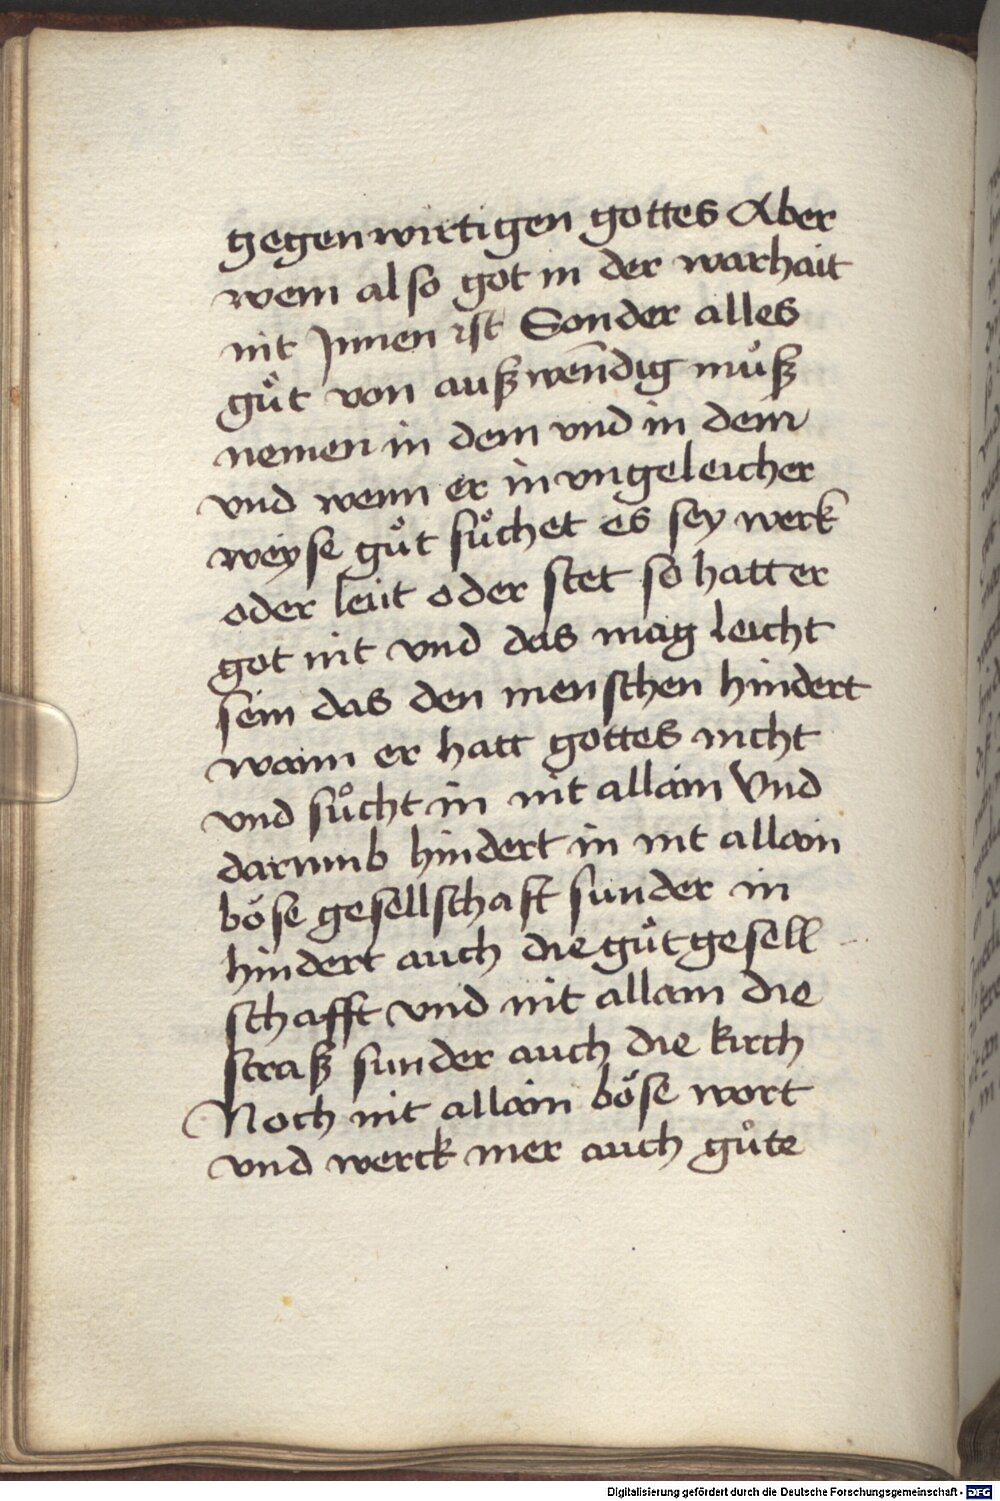 gegenwirtigen gottes Aber
wem also got in der warhait
nit Jnnen ist Sonder alles
gůt von außwēndig můß
nemen in dem vnd in dem
vnd wenn er in vngeleicher
weyse gůt sůchet es sey werk
oder leüt oder stet so hatt er
got nit vnd das mag leicht
sein das den menschen hindert
wann er hatt gottes nicht
vnd sůcht in nit allain Vnd
darumb hindert in nit allain
böse gesellschafft sunder in
hindert auch die gůt gesell
schafft vnd nit allain die
straß sunder auch die kirch
Noch nit allain böse wort
vnd werck mer auch gůte
Digitalisierung gefördert durch die Deutsche Forschungsgemeinschaft - DFG